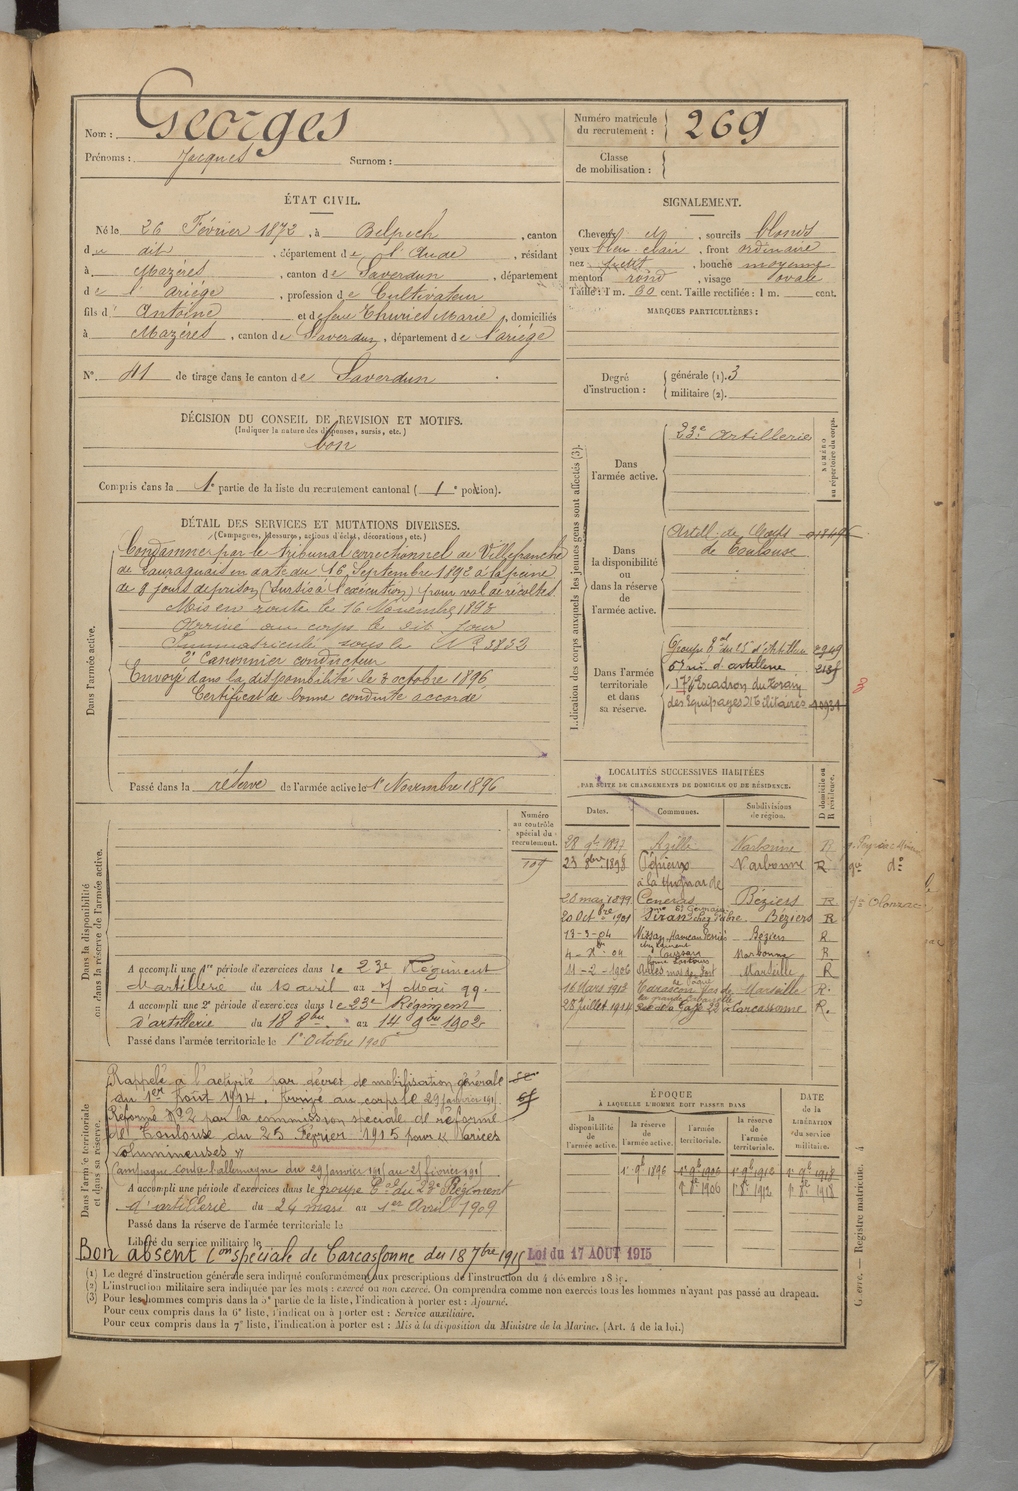 Nom : Georges
Prénoms : Jacques Surnom :
Numéro matricule du recrutement : 269
Classe de mobilisation :
ÉTAT CIVIL.
Né le 26 Février 1872, à Belpech, canton
du dit, département de l'Aude, résidant
à Mazères, canton de Saverdun, département
de l'Ariège, profession de Cultivateur
fils d'Antoine et de feue Thuriès Marie, domiciliés
à Mazères, canton de Saverdun, département de l'ariège
N° 41 de tirage dans le canton de Saverdun
DÉCISION DU CONSEIL DE REVISION ET MOTIFS.
(Indiquer la nature des dispenses, sursis, etc.)
bon
Compris dans la 1e partie de la liste du recrutement cantonal ( 1e portion).
SIGNALEMENT.
Cheveux et, sourcils blonds
yeux bleu clair, front ordinaire
nez petit, bouche moyenne
menton rond, visage ovale
Taille : 1 m. 60 cent. Taille rectifiée : 1 m. cent.
MARQUES PARTICULIÈRES :
Degré d'instruction : générale (1). 3
militaire (2).
DÉTAIL DES SERVICES ET MUTATIONS DIVERSES.
(Campagnes, blessures, actions d'éclat, décorations, etc.)
Dans l'armée active.
Condamné par le tribunal correctionnel de Villefranche
de Lauraguais en date du 16 Septembre 1892 à la peine
de 8 jours de prison (sursis à l'exécution) pour vol de récoltes.
Mis en route le 16 Novembre 1893
Arrivé au corps le dit jour
Immatriculé sous le N° 3832
2e Canonnier conducteur
Envoyé dans la disponibilité le 3 octobre 1896
Certificat de bonne conduite accordé
Passé dans la réserve de l'armée active le 1er Novembre 1896
Indication des corps auxquels les jeunes gens sont affectés (3).
NUMÉRO au répertoire du corps.
Dans l'armée active.
23e Artillerie
Dans la disponibilité ou dans la réserve de l'armée active.
Artill. de Corps
de Toulouse
Dans l'armée territoriale et dans sa réserve.
Groupe tal du 15 d'Artillerie 2949
d'artillerie
17e Escadron du Train
des Equipages Militaires
LOCALITÉS SUCCESSIVES HABITÉES
PAR SUITE DE CHANGEMENTS DE DOMICILE OU DE RÉSIDENCE.
Dates. Communes. Subdivisions de région. D domicile ou R résidence.
28 9e 1897 Azille Narbonne R
23 8bre 1898 Pépieux Narbonne R
28 mai 1899 Béziers R
20 Octbre 1901 Siran Béziers R
13-3-04 Nissan Béziers R
4-Xbre-04 Narbonne R
11-2-1906 Arles Marseille R
16 Mars 1912 Tarascon Marseille R.
28 juillet 1914 Carcassonne R.
Dans la disponibilité ou dans la réserve de l'armée active.
Numéro au contrôle spécial du recrutement.
109
A accompli une 1re période d'exercices dans le 23e Régiment
d'artillerie du 10 avril au 7 Mai 99.
A accompli une 2e période d'exercices dans le 23e Régiment
d'artillerie du 18 8bre au 14 9bre 1902
Passé dans l'armée territoriale le 1er Octobre 1906
Dans l'armée territoriale et dans sa réserve.
Rappelé à l'activité par décret de mobilisation générale
du 1er Août 1914. Arrivé au corps le 29 janvier 1915.
Réformé N° 2 par la commission spéciale de réforme
de Toulouse du 25 Février 1915 pour « Varices
volumineuses »
Campagne contre l'allemagne du 29 janvier 1915 au 25 février 1915
A accompli une période d'exercices dans le groupe tal du 23e Régiment
d'artillerie du 24 mars au 1er Avril 1909
Passé dans la réserve de l'armée territoriale le
Libéré du service militaire le
Bon absent Con spéciale de Carcassonne du 18 7bre 1915 Loi du 17 AOUT 1915
ÉPOQUE
À LAQUELLE L'HOMME DOIT PASSER DANS
la disponibilité de l'armée active. la réserve de l'armée active. l'armée territoriale. la réserve de l'armée territoriale. DATE de la LIBÉRATION du service militaire.
1er 9e 1896 1er 9e 1906 1er 9e 1912 1er 9e 1918
1er 8e 1906 1er 8e 1912 1er 8e 1918
(1) Le degré d'instruction générale sera indiqué conformément aux prescriptions de l'instruction du 4 décembre 1889.
(2) L'instruction militaire sera indiquée par les mots : exercé ou non exercé. On comprendra comme non exercés tous les hommes n'ayant pas passé au drapeau.
(3) Pour les hommes compris dans la 5e partie de la liste, l'indication à porter est : Ajourné.
Pour ceux compris dans la 6e liste, l'indication à porter est : Service auxiliaire.
Pour ceux compris dans la 7e liste, l'indication à porter est : Mis à la disposition du Ministre de la Marine. (Art. 4 de la loi.)
Guerre. — Registre matricule. 4